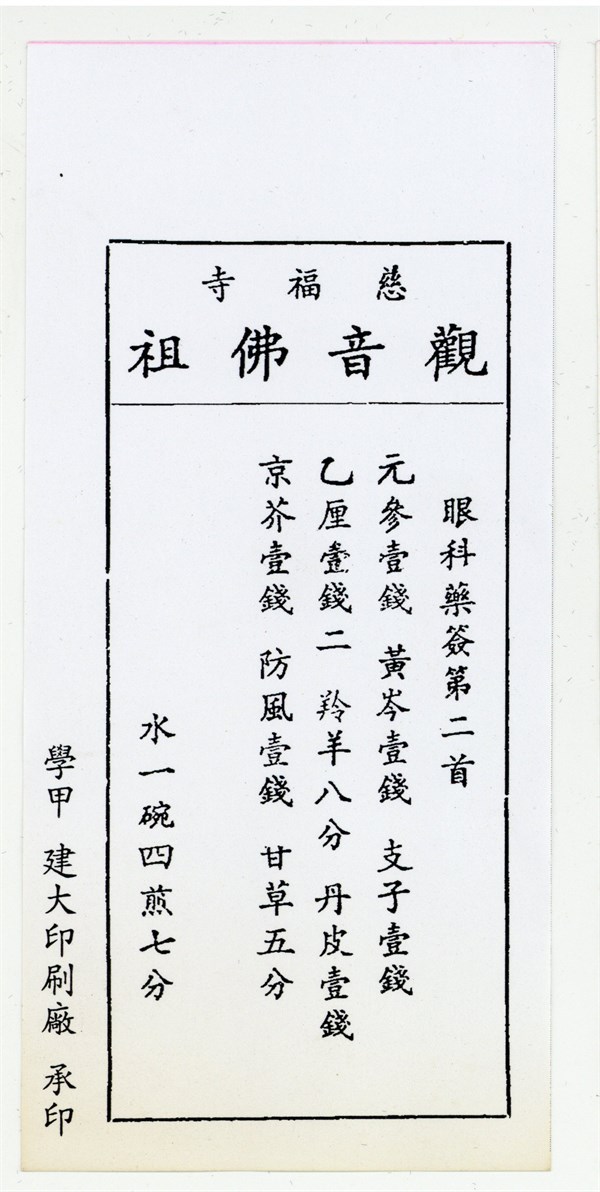 慈福寺
觀音佛祖
眼科藥簽第二首
元參壹錢 黃岑壹錢 支子壹錢
乙厘壹錢二 羚羊八分 丹皮壹錢
京芥壹錢 防風壹錢 甘草五分
水一碗四煎七分
學甲 建大印刷廠 承印